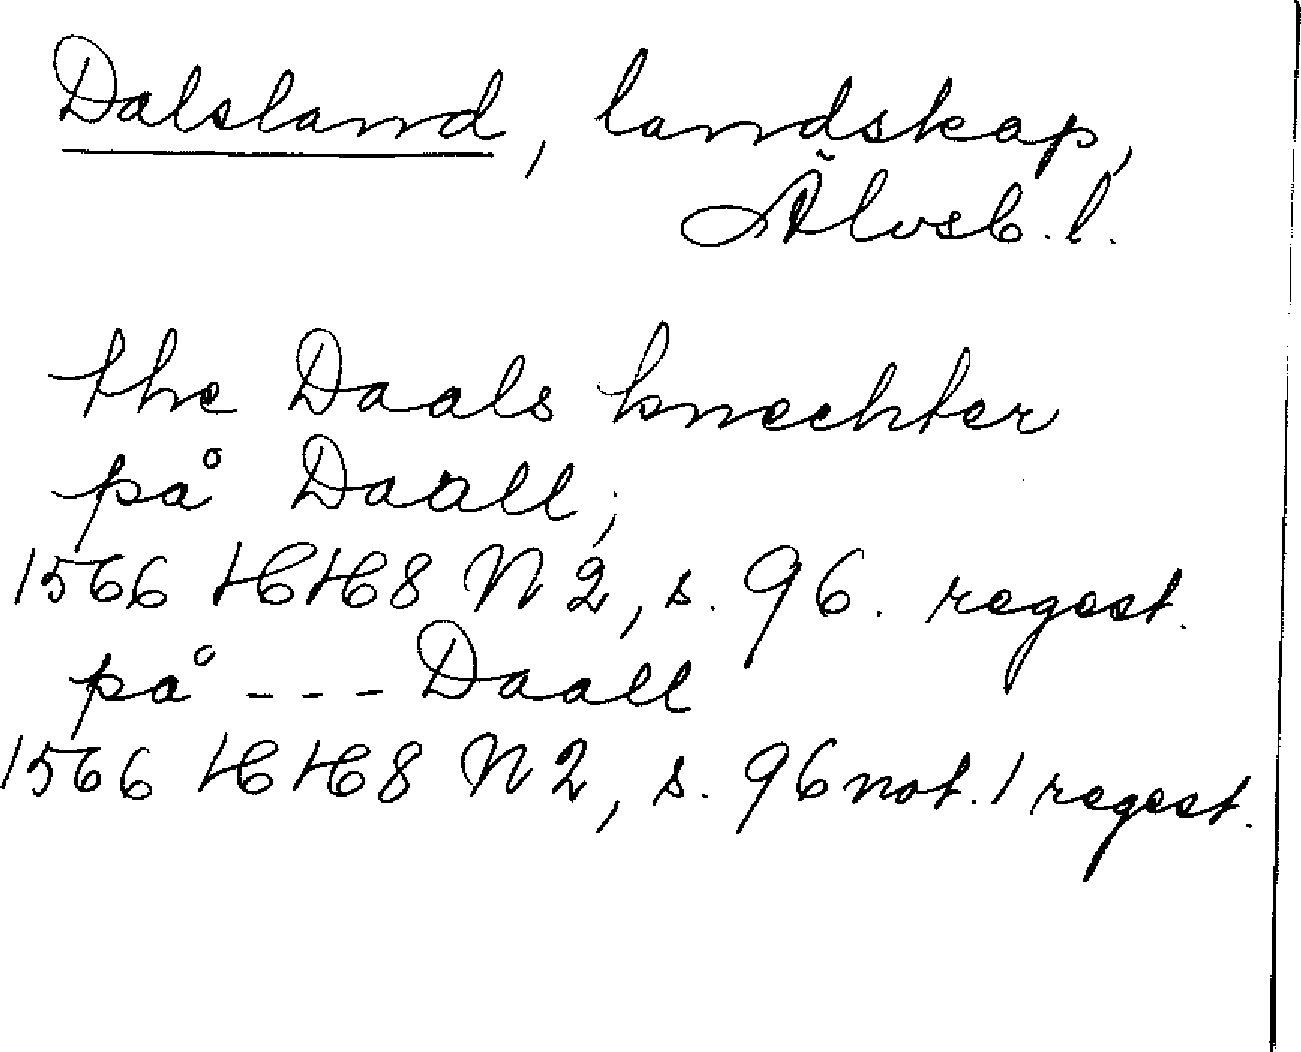 Dalsland, landskap,
Älvsb. l.
the Daals knechter
på Daall;
1566 HH8 N 2, s. 96. regest.
på --- Daall
1566 HH8 N 2, s. 96 not. 1 regest.